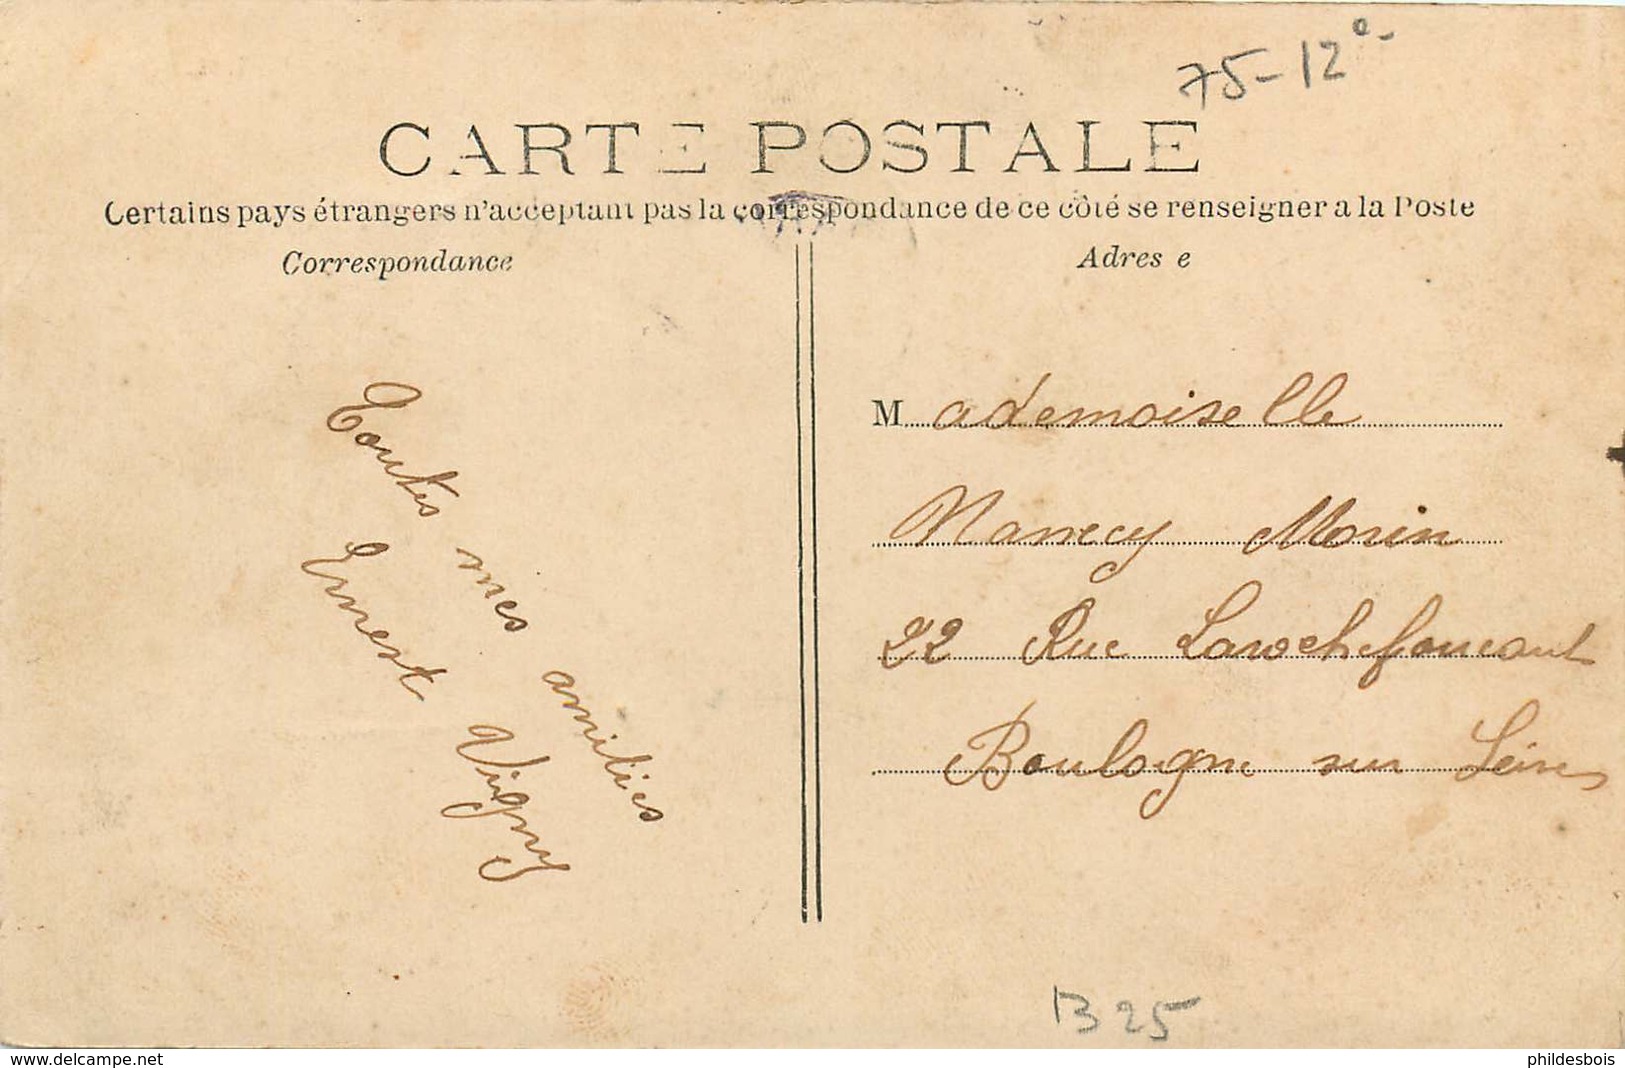 75-12e-
CARTE POSTALE
Certains pays étrangers n'acceptant pas la correspondance de ce côté se renseigner a la Poste
Correspondance
Adres e
Toutes mes amitiés
Ernest Vigny
Mademoiselle
Nancy Morin
22 Rue Larochefoucault
Boulogne sur Seine
B 25
www.delcampe.net
phildesbois